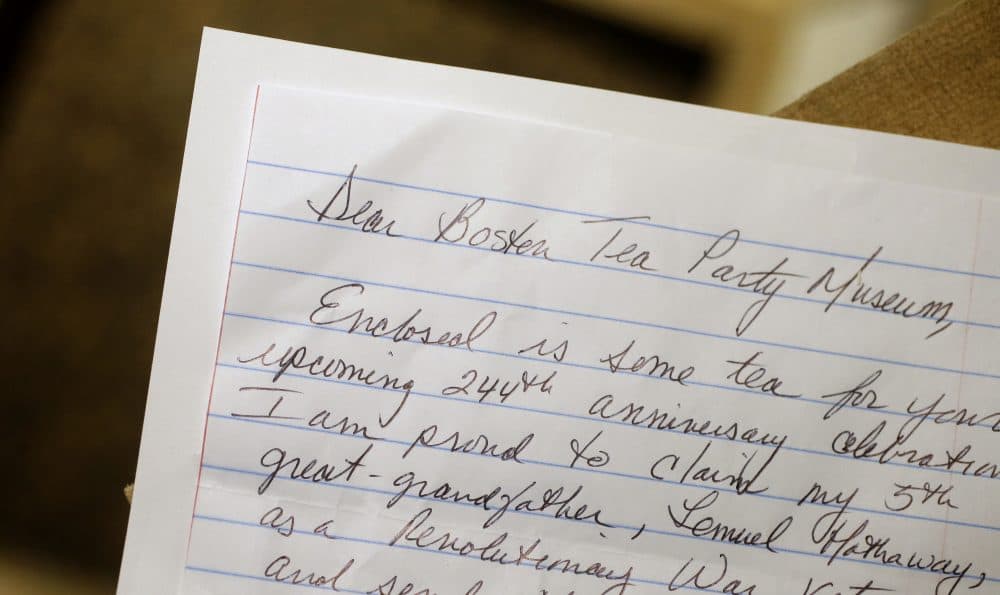 Dear Boston Tea Party Museum,
Enclosed is some tea for your
upcoming 244th anniversary celebration
I am proud to claim my 5th
great-grandfather, Lemuel Hathaway,
as a Revolutionary War
and